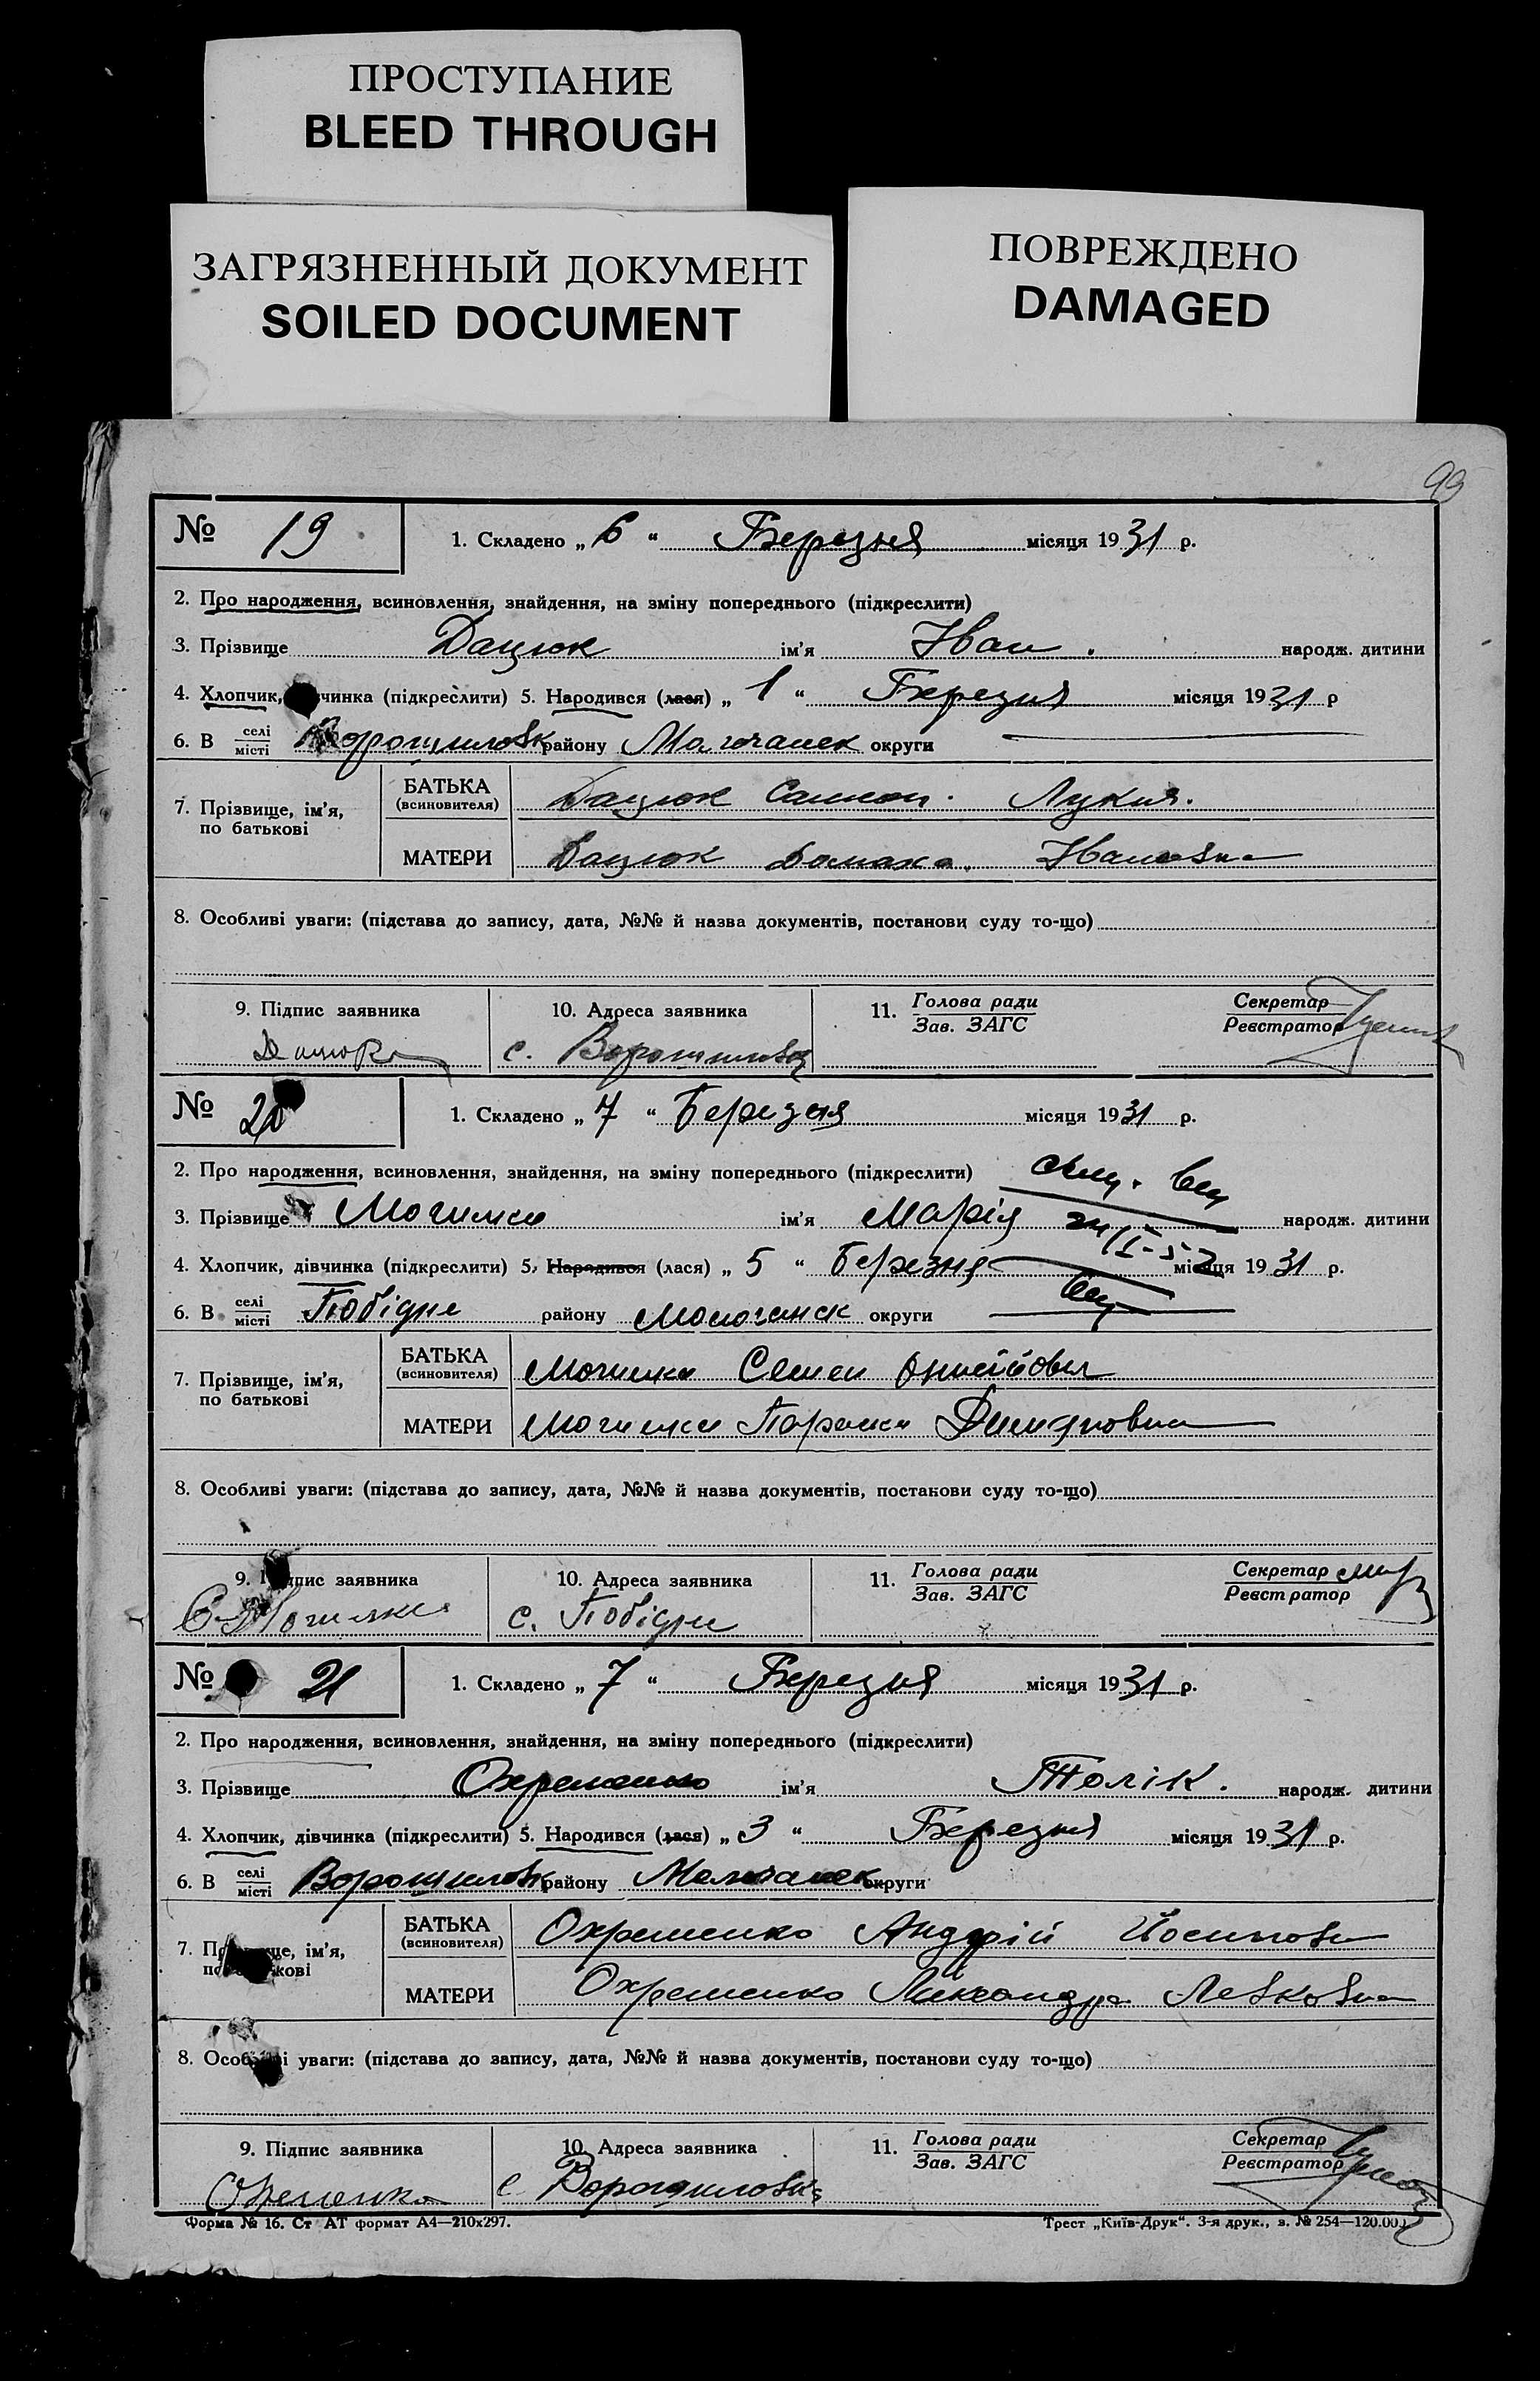 ПРОСТУПАНИЕ
BLEED THROUGH
ЗАГРЯЗНЕННЫЙ ДОКУМЕНТ
SOILED DOCUMENT
ПОВРЕЖДЕНО
DAMAGED
№ 19
1. Складено „ 6 “ Березня місяця 1931 р.
2. Про народження, всиновлення, знайдення, на зміну попереднього (підкреслити)
3. Прізвище Дацюк ім'я Іван . народж. дитини
4. Хлопчик, вчинка (підкреслити) 5. Народився (лася) „ 1 “ Березня місяця 1931 р
6. В селі місті Ворошиловк району округи
7. Прізвище, ім'я, по батькові
БАТЬКА (всиновителя) Дацюк
МАТЕРИ Дацюк Домаха Івановна
8. Особливі уваги: (підстава до запису, дата, №№ й назва документів, постанови суду то-що)
9. Підпис заявника
10. Адреса заявника
11. Голова ради Зав. ЗАГС
Секретар Реєстратор
Дацюк с. Ворошиловка
№ 20
1. Складено „ 7 “ Березня місяця 1931 р.
2. Про народження, всиновлення, знайдення, на зміну попереднього (підкреслити)
3. Прізвище Могилка ім'я Марія народж. дитини
4. Хлопчик, дівчинка (підкреслити) 5. Народився (лася) „ 5 “ Березня місяця 1931 р.
6. В селі місті Побідне району Молочанск округи
7. Прізвище, ім'я, по батькові
БАТЬКА (всиновителя) Могилка Семен
МАТЕРИ Могилка Параска
8. Особливі уваги: (підстава до запису, дата, №№ й назва документів, постанови суду то-що)
9. Підпис заявника
10. Адреса заявника
11. Голова ради Зав. ЗАГС
Секретар Реєстратор
С Могилка с. Побідне
№ 21
1. Складено „ 7 “ Березня місяця 1931 р.
2. Про народження, всиновлення, знайдення, на зміну попереднього (підкреслити)
3. Прізвище Охременко ім'я Толік . народж. дитини
4. Хлопчик, дівчинка (підкреслити) 5. Народився (лася) „ 3 “ Березня місяця 1931 р.
6. В селі місті Ворошиловк району округи
7. ім'я,
БАТЬКА (всиновителя) Охременко Андрій Йосипови
МАТЕРИ Охременко Левковна
8. уваги: (підстава до запису, дата, №№ й назва документів, постанови суду то-що)
9. Підпис заявника
10. Адреса заявника
11. Голова ради Зав. ЗАГС
Секретар Реєстратор
с Ворошиловка
Форма № 16. Ст АТ формат А4—210х297.
Трест „Київ-Друк“. 3-я друк., з. № 254—120.00